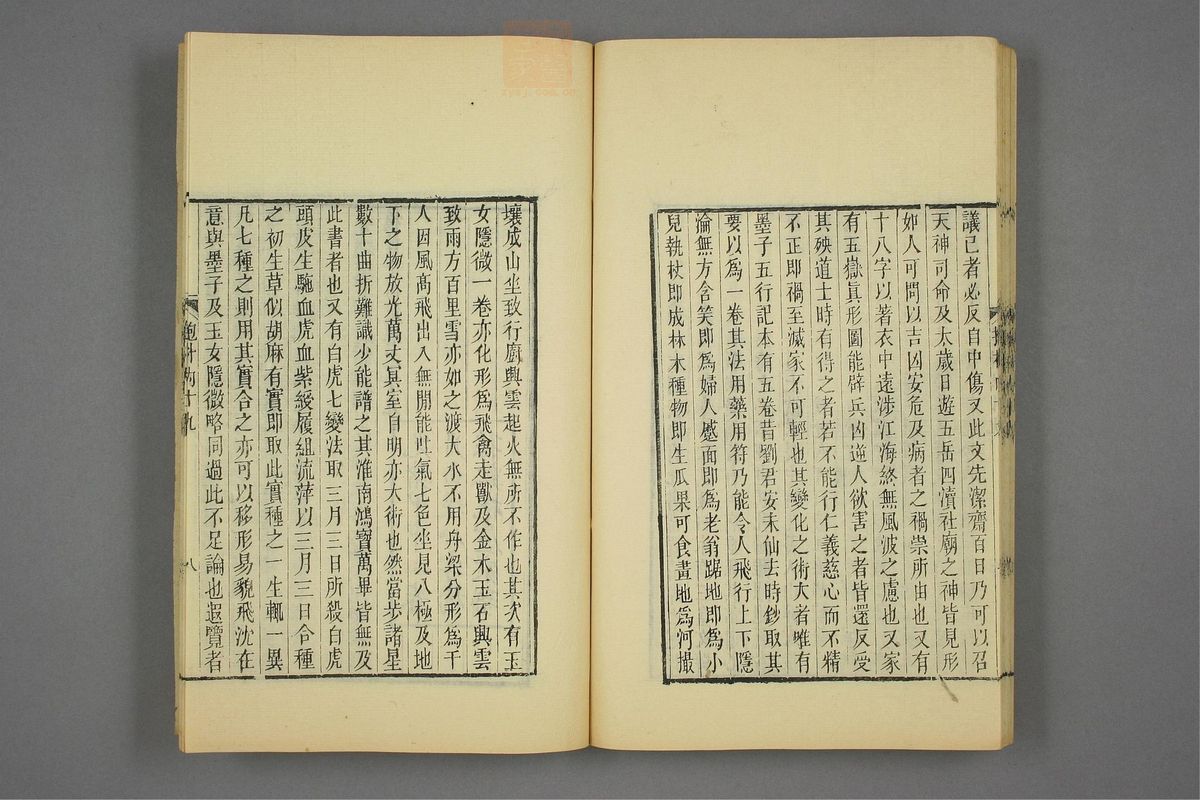 議己者必反自中傷又此文先潔齋百日乃可以召
天神司命及太歲日遊五岳四瀆社廟之神皆見形
如人可問以吉凶安危及病者之禍祟所由也又有
十八字以著衣中遠涉江海終無風波之慮也又家
有五嶽眞形圖能辟兵凶逆人欲害之者皆還反受
其殃道士時有得之者若不能行仁義慈心而不精
不正即禍至滅家不可輕也其變化之術大者唯有
墨子五行記本有五卷昔劉君安未仙去時鈔取其
要以爲一卷其法用藥用符乃能令人飛行上下隱
淪無方含笑即爲婦人蹙面即爲老翁踞地即爲小
兒執杖即成林木種物即生瓜果可食畫地爲河撮
壤成山坐致行廚興雲起火無所不作也其次有玉
女隱微一卷亦化形爲飛禽走獸及金木玉石興雲
致雨方百里雪亦如之渡大水不用舟梁分形爲千
人因風高飛出入無閒能吐氣七色坐見八極及地
下之物放光萬丈冥室自明亦大術也然當步諸星
數十曲折難識少能譜之其淮南鴻寶萬畢皆無及
此書者也又有白虎七變法取三月三日所殺白虎
頭皮生駞血虎血紫綬履組流萍以三月三日合種
之初生草似胡麻有實即取此實種之一生輒一異
凡七種之則用其實合之亦可以移形易貌飛沈在
意與墨子及玉女隱微略同過此不足論也遐覽者
八